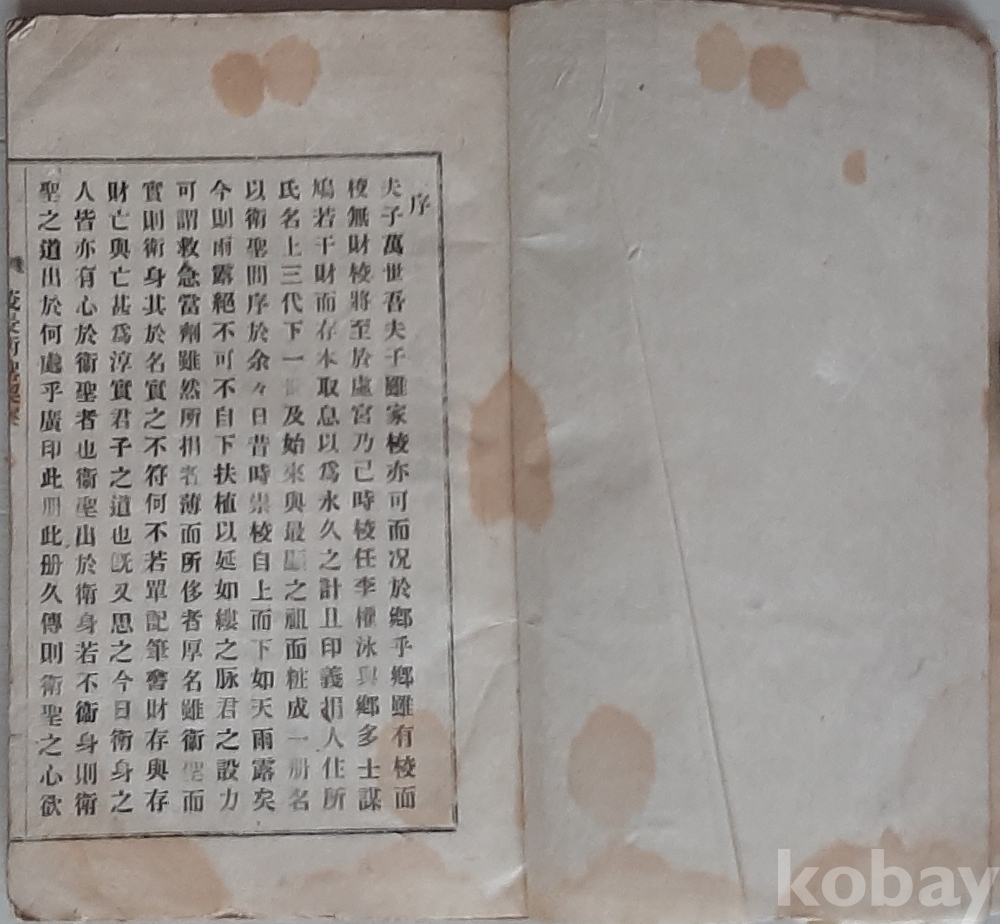 序
夫子萬世吾夫子雖家校亦可而況於鄕乎鄕雖有校而
校無財校將至於虛宮乃已時校任李權泳與鄕多士謀
鳩若干財而存本取息以爲永久之計且印義捐人住所
氏名上三代下一世及始來與最顯之祖而粧成一册名
以衛聖問序於余々日昔時崇校自上而下如天雨露矣
今則雨露絕不可不自下扶植以延如縷之脉君之設力
可謂救急當劑雖然所捐者薄而所侈者厚名雖衛聖而
實則衛身其於名實之不符何不若單記筆奮財存與存
財亡與亡甚爲淳實君子之道也旣又思之今日衛身之
人皆亦有心於衛聖者也衛聖出於衛身若不衛身則衛
聖之道出於何處乎廣印此册此册久傳則衛聖之心欲
kobay